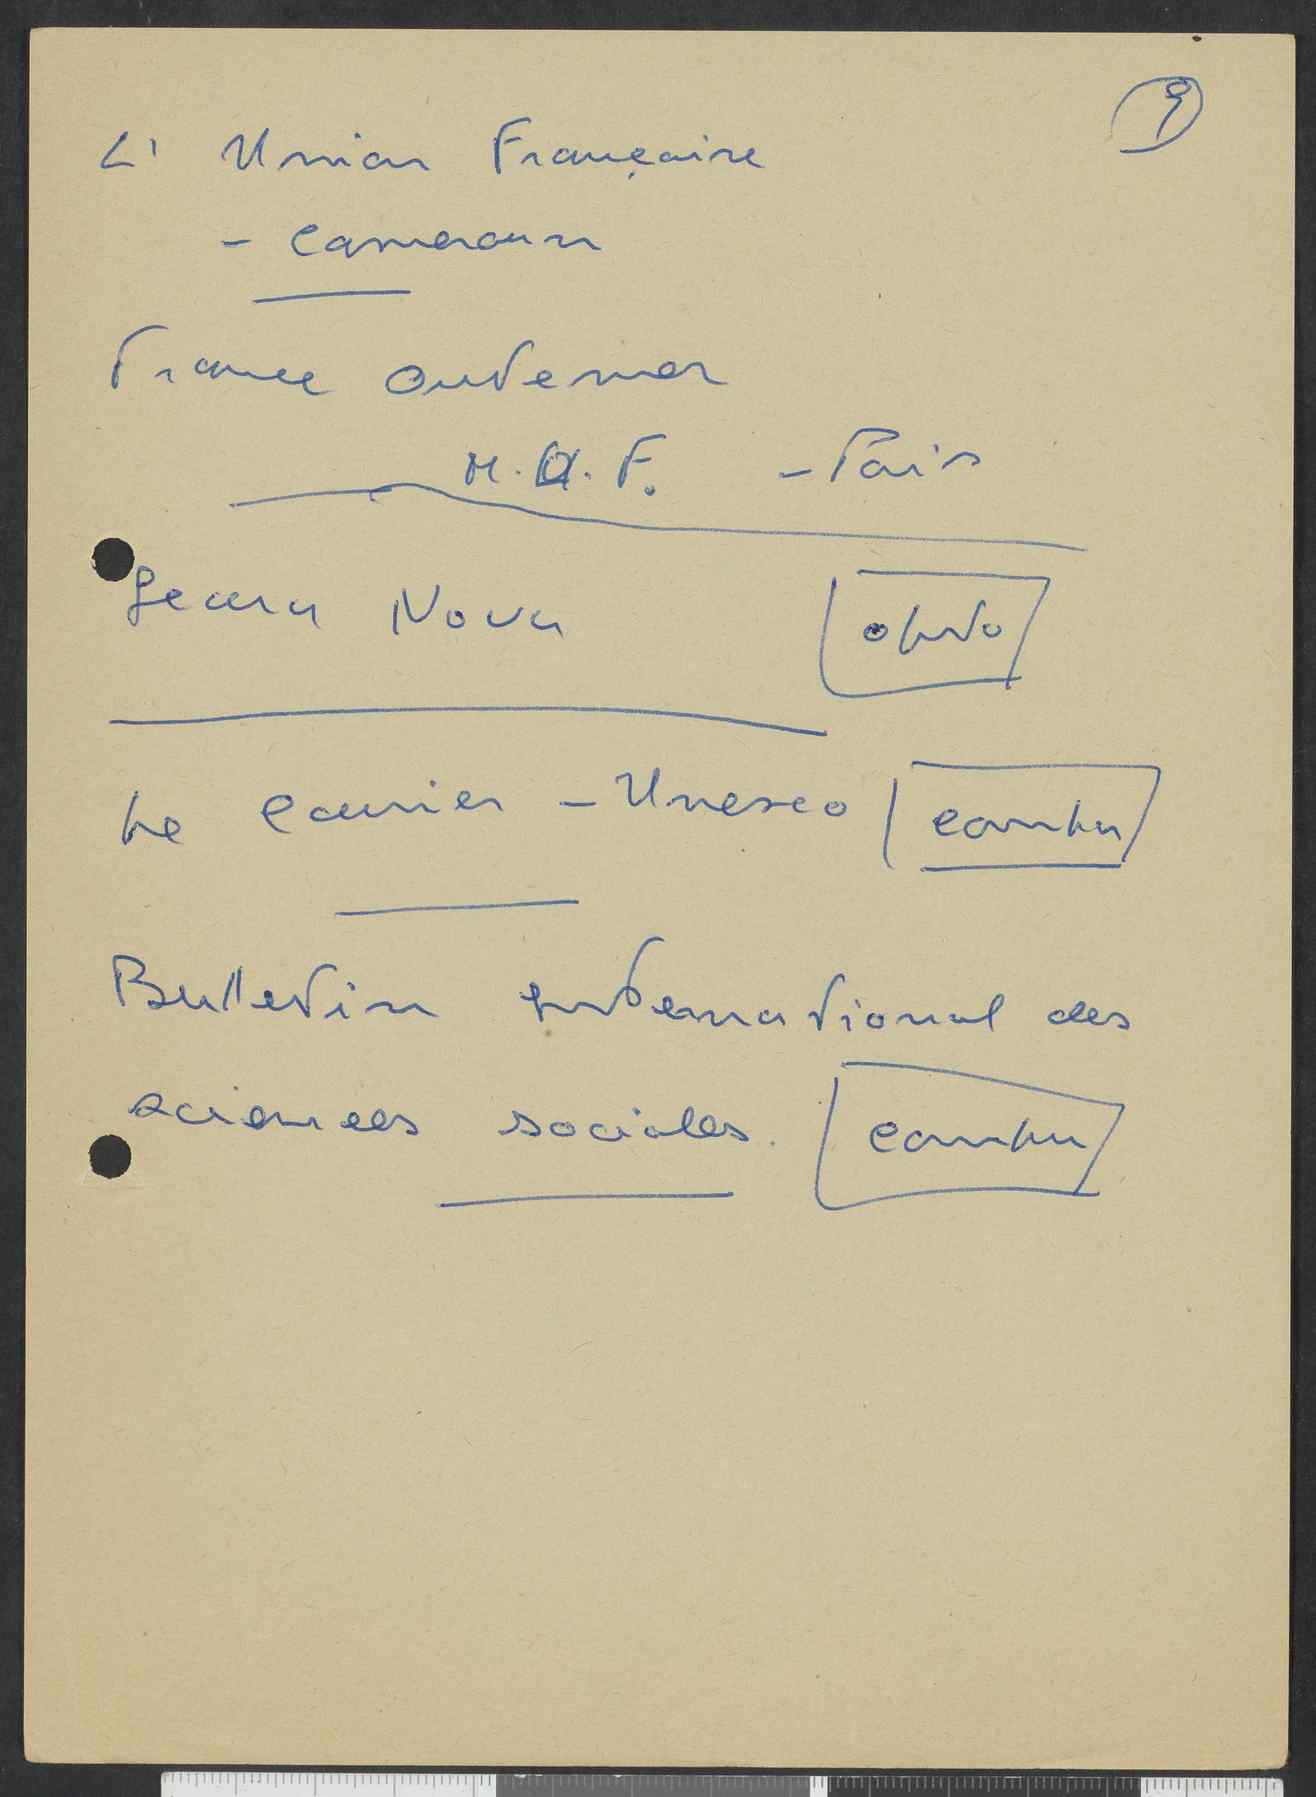 9
L' Union Française
- Cameroun
France Outremer
M.O.F. - Paris
Seara Nova
Le Courrier - Unesco
Bulletin international des
sciences sociales.